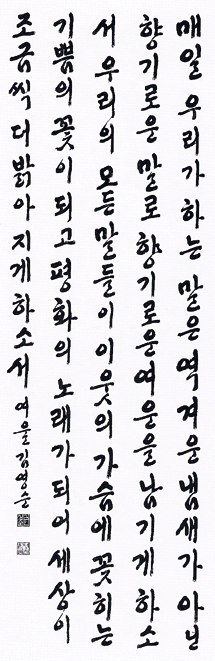 매일 우리가 하는 말은 역겨운 냄새가 아닌
향기로운 말로 향기로운 여운을 남기게 하소
서 우리의 모든 말들이 이웃의 가슴에 꽂히는
기쁨의 꽃이 되고 평화의 노래가 되어 세상이
조금씩 더 밝아지게 하소서 여울 김영순